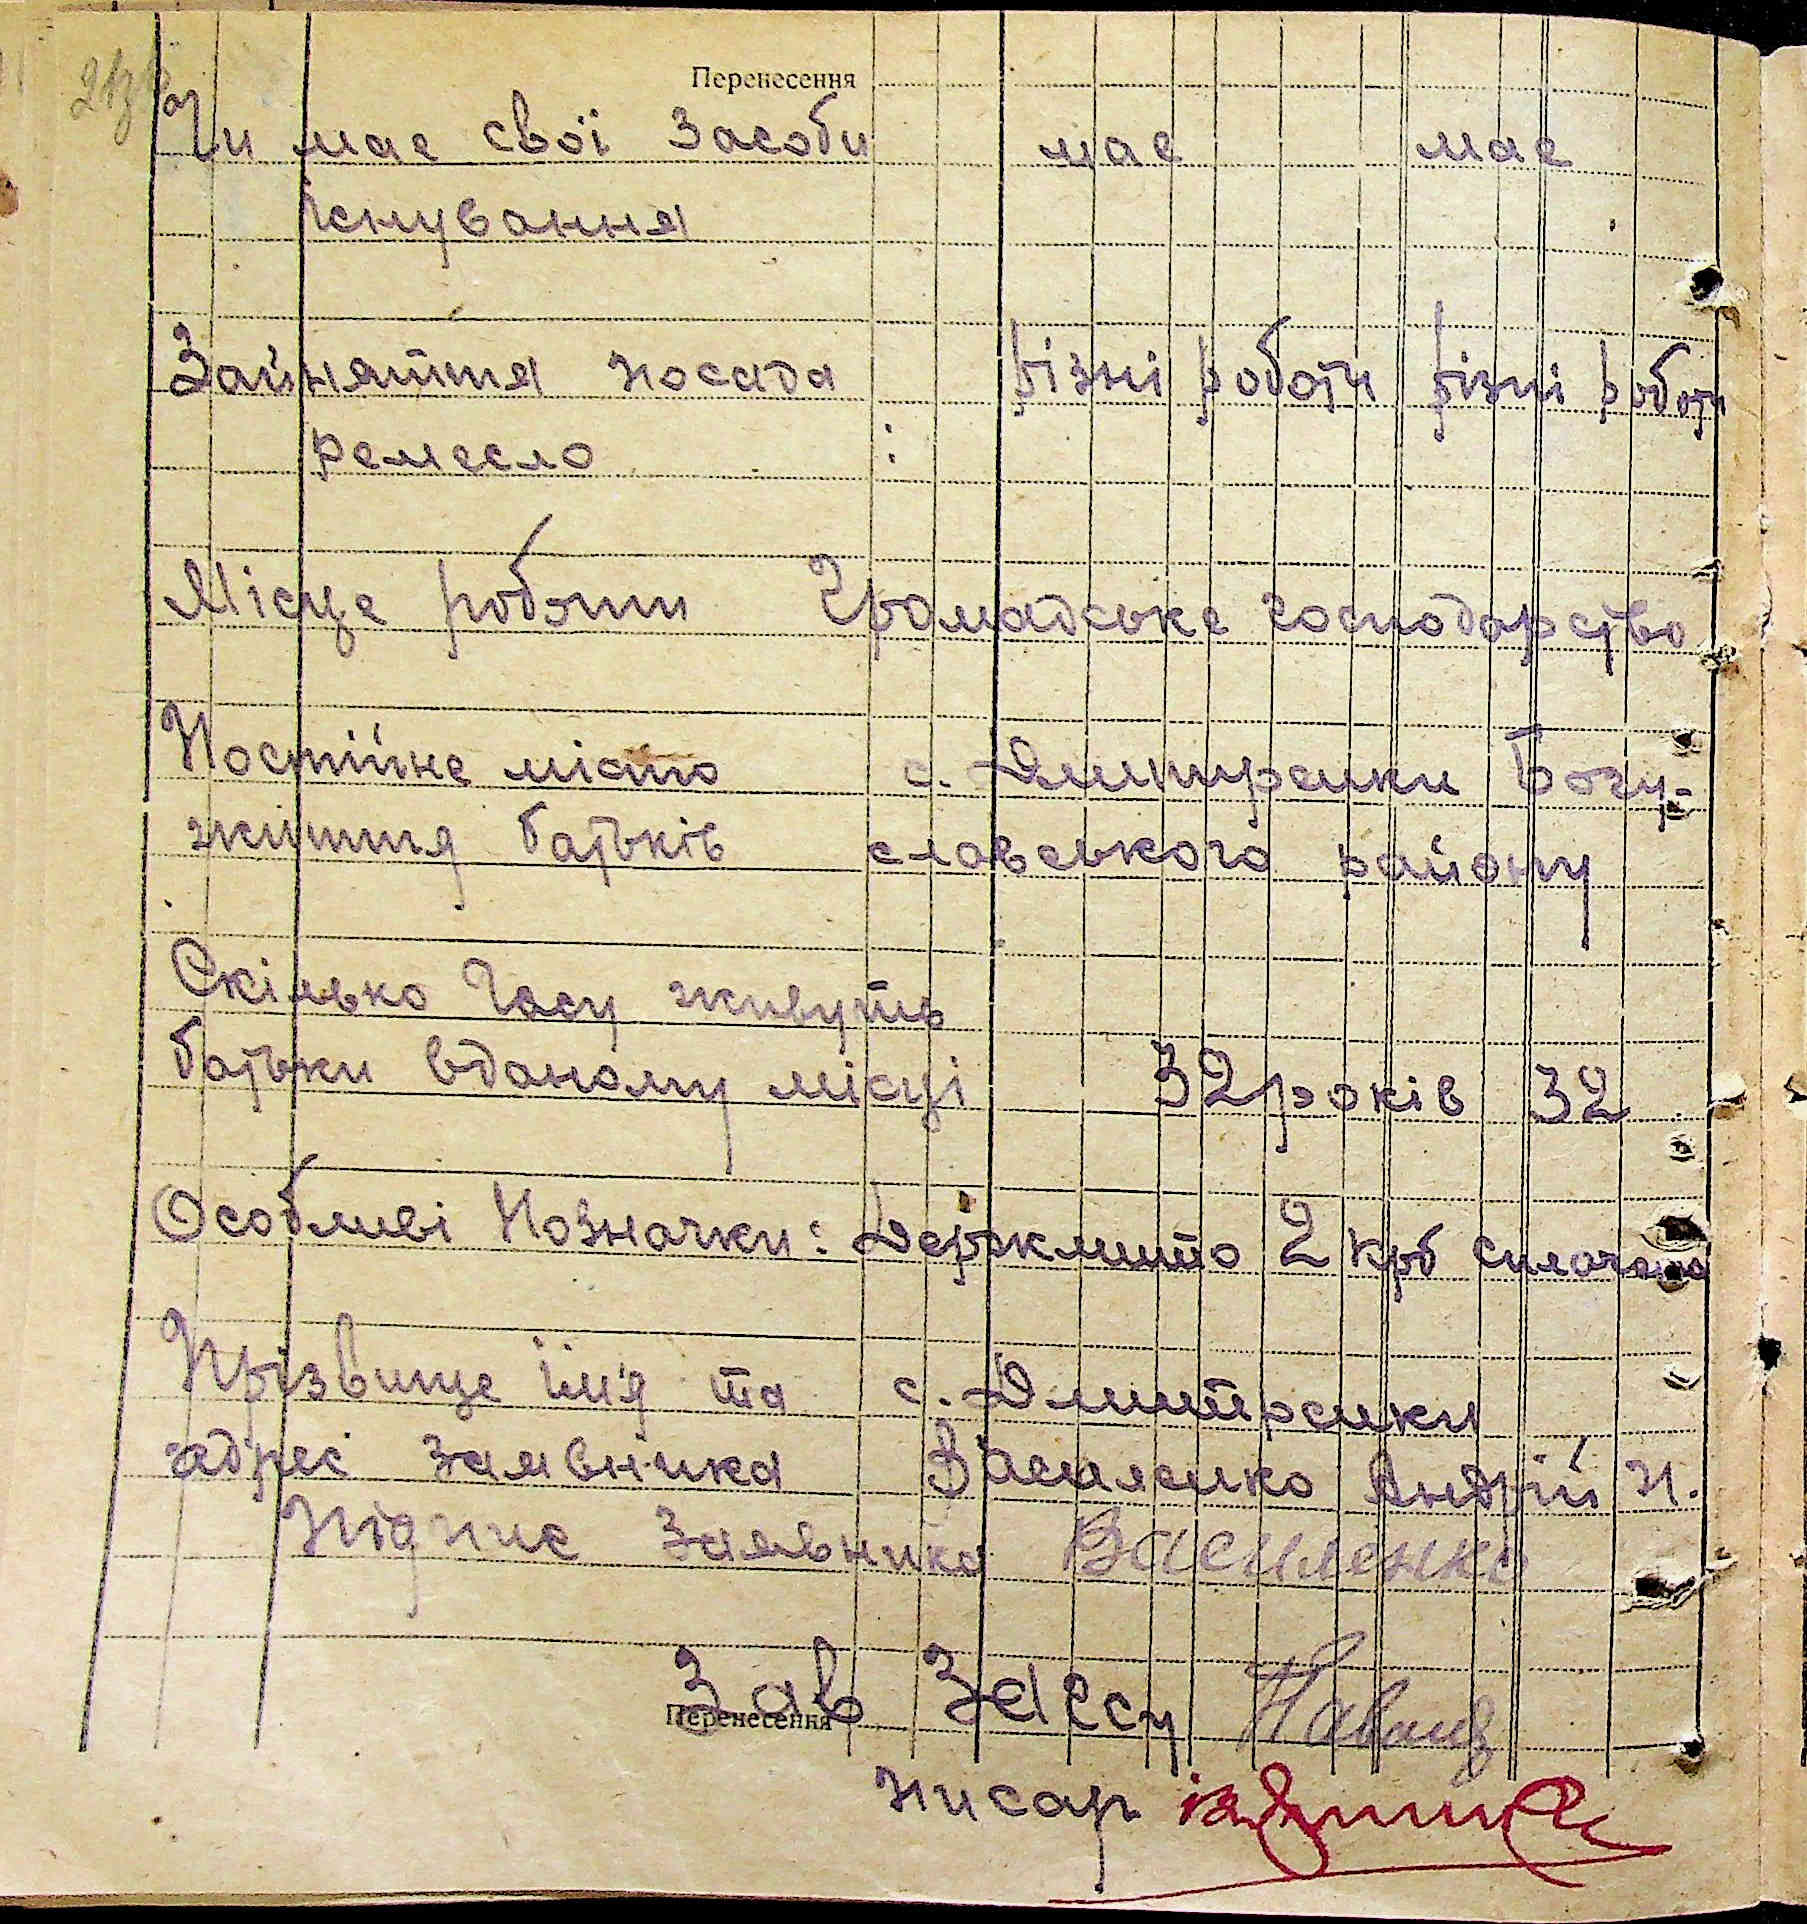 Перенесення
Чи має свої засоби має має
існування
Зайняття посада різні роботи різні роботи
ремесло :
Місце роботи Громадське господарство
Постійне місто с. Дмитренки Богу-
життя батьків славського району
Скілько часу живуть
батьки вданому місці 32 років 32
Особливі позначки: Держмито 2 крб сплачено
Прізвище ім'я та с. Дмитренки
адрес заявника Василенко Андрій П.
Підпис заявника Василенко
Зав Загсу
Перенесення
писар